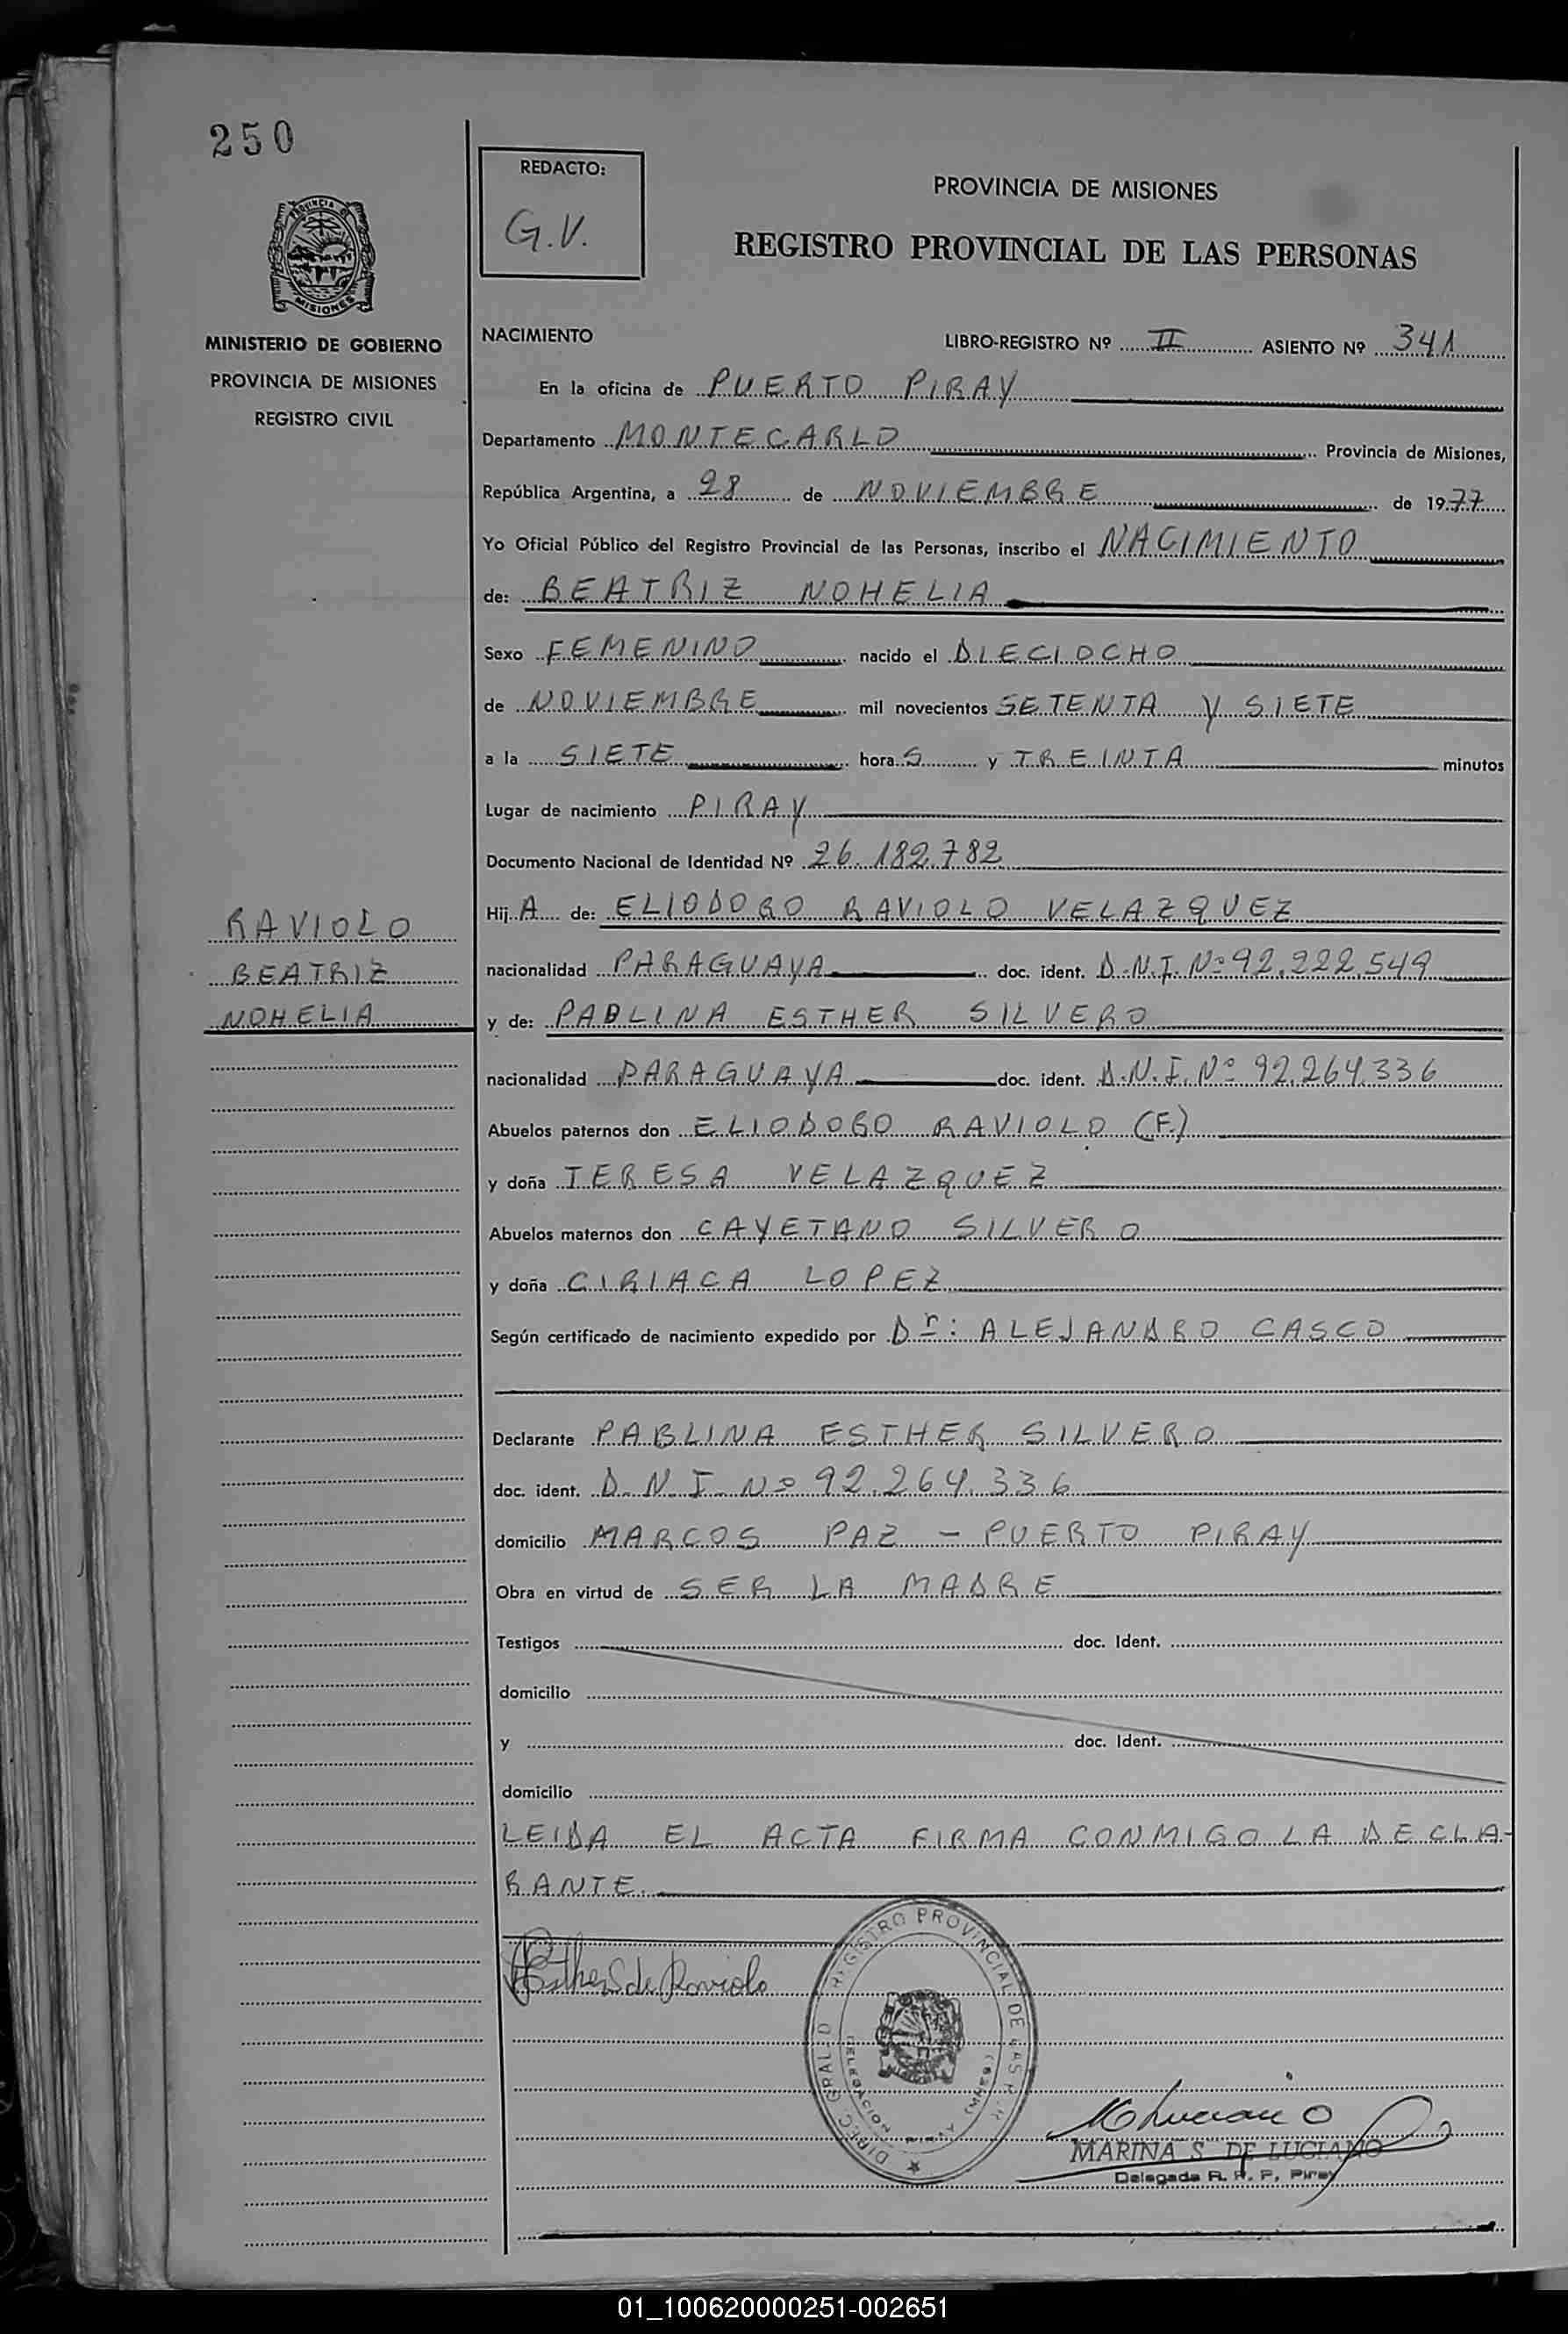 250
REDACTO:
G.V.
PROVINCIA DE MISIONES
REGISTRO PROVINCIAL DE LAS PERSONAS
PROVINCIA DE
MISIONES
MINISTERIO DE GOBIERNO
PROVINCIA DE MISIONES
REGISTRO CIVIL
NACIMIENTO LIBRO-REGISTRO Nº II ASIENTO Nº 341
En la oficina de PUERTO PIRAY
Departamento MONTECARLO Provincia de Misiones,
República Argentina, a 28 de NOVIEMBRE de 1977
Yo Oficial Público del Registro Provincial de las Personas, inscribo el NACIMIENTO
de: BEATRIZ NOHELIA
Sexo FEMENINO nacido el DIECIOCHO
de NOVIEMBRE mil novecientos SETENTA Y SIETE
a la SIETE hora S y TREINTA minutos
Lugar de nacimiento PIRAY
Documento Nacional de Identidad Nº 26.182.782
RAVIOLO
BEATRIZ
NOHELIA
Hij A de: ELIODORO RAVIOLO VELAZQUEZ
nacionalidad PARAGUAYA doc. ident. D.N.I. Nº 92.222.549
y de: PABLINA ESTHER SILVERO
nacionalidad PARAGUAYA doc. ident. D.N.I. Nº 92.264.336
Abuelos paternos don ELIODORO RAVIOLO (F.)
y doña TERESA VELAZQUEZ
Abuelos maternos don CAYETANO SILVERO
y doña CIRIACA LOPEZ
Según certificado de nacimiento expedido por Dr: ALEJANDRO CASCO
Declarante PABLINA ESTHER SILVERO
doc. ident. D.N.I. Nº 92.264.336
domicilio MARCOS PAZ - PUERTO PIRAY
Obra en virtud de SER LA MADRE
Testigos doc. Ident.
domicilio
y doc. Ident.
domicilio
LEIDA EL ACTA FIRMA CONMIGO LA DECLA-
RANTE.
Esther S de Raviolo
DIREC. GRAL D REGISTRO PROVINCIAL DE LAS P
DELEGACION
MARINA S. DE LUCIANO
Delegada R. P. P. Piray
01_100620000251-002651